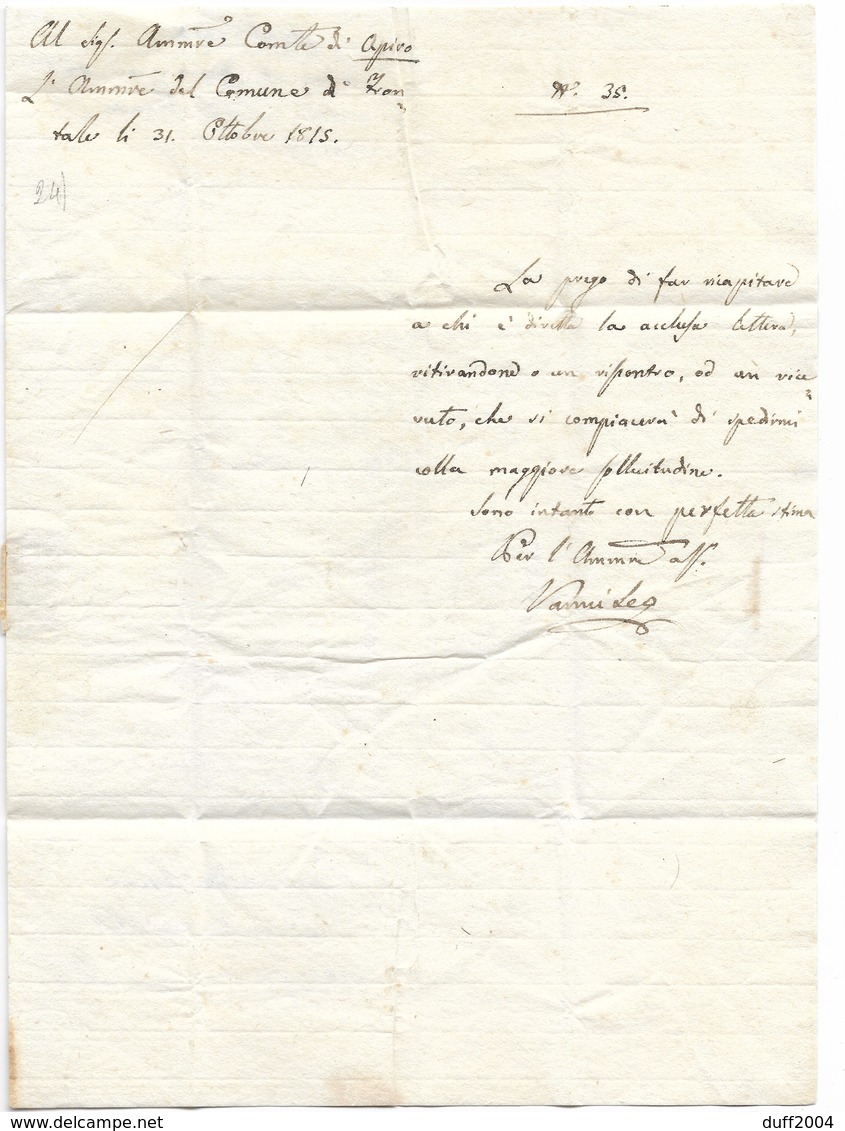 Al Sigr. Ammre Comle di Apiro
L'Ammre del Comune di Fron=
tale li 31. Ottobre 1815.
N.º 35.
24)
La prego di far ricapitare
a chi è diretta la acclusa lettera,
ritirandone o un risontro, od un rice=
vuto, che si compiacerà di spedirmi
colla maggiore sollecitudine.
Sono intanto con perfetta stima
Per l'Ammre ass.
Vanni Seg
delcampe.net
duff2004